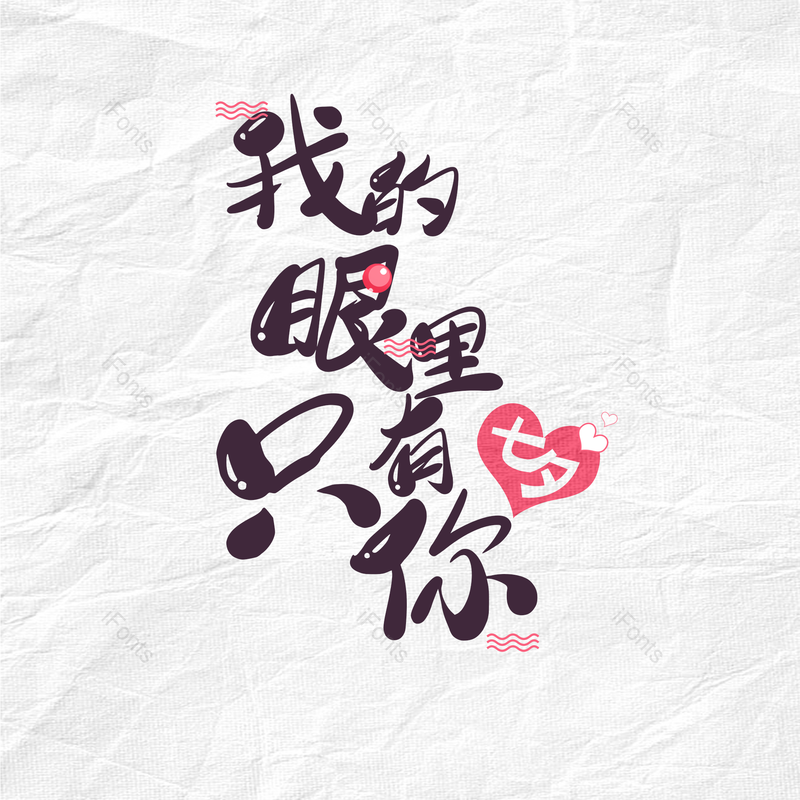 我的
眼里
只有
你
七夕
iFonts
iFonts
iFonts
iFonts
iFonts
iFonts
iFonts
iFonts
iFonts